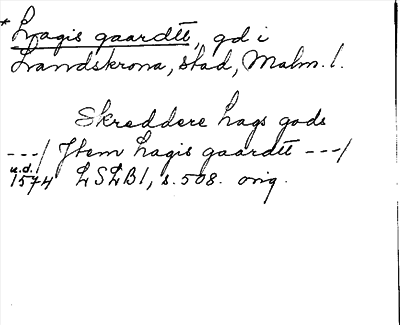 * Hagis gaardtt, gd i
Landskrona, stad, Malm. l.
Skreddere Hags gods
---/ Jtem hagis gaardtt ---/
u.d.
1574 LSLB1, s. 508. orig.